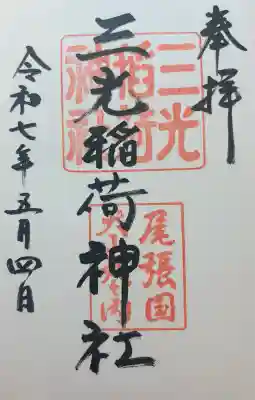 奉拝
三光稲荷神社
三光
稲荷
神社
尾張国
犬山城之内
令和七年五月四日